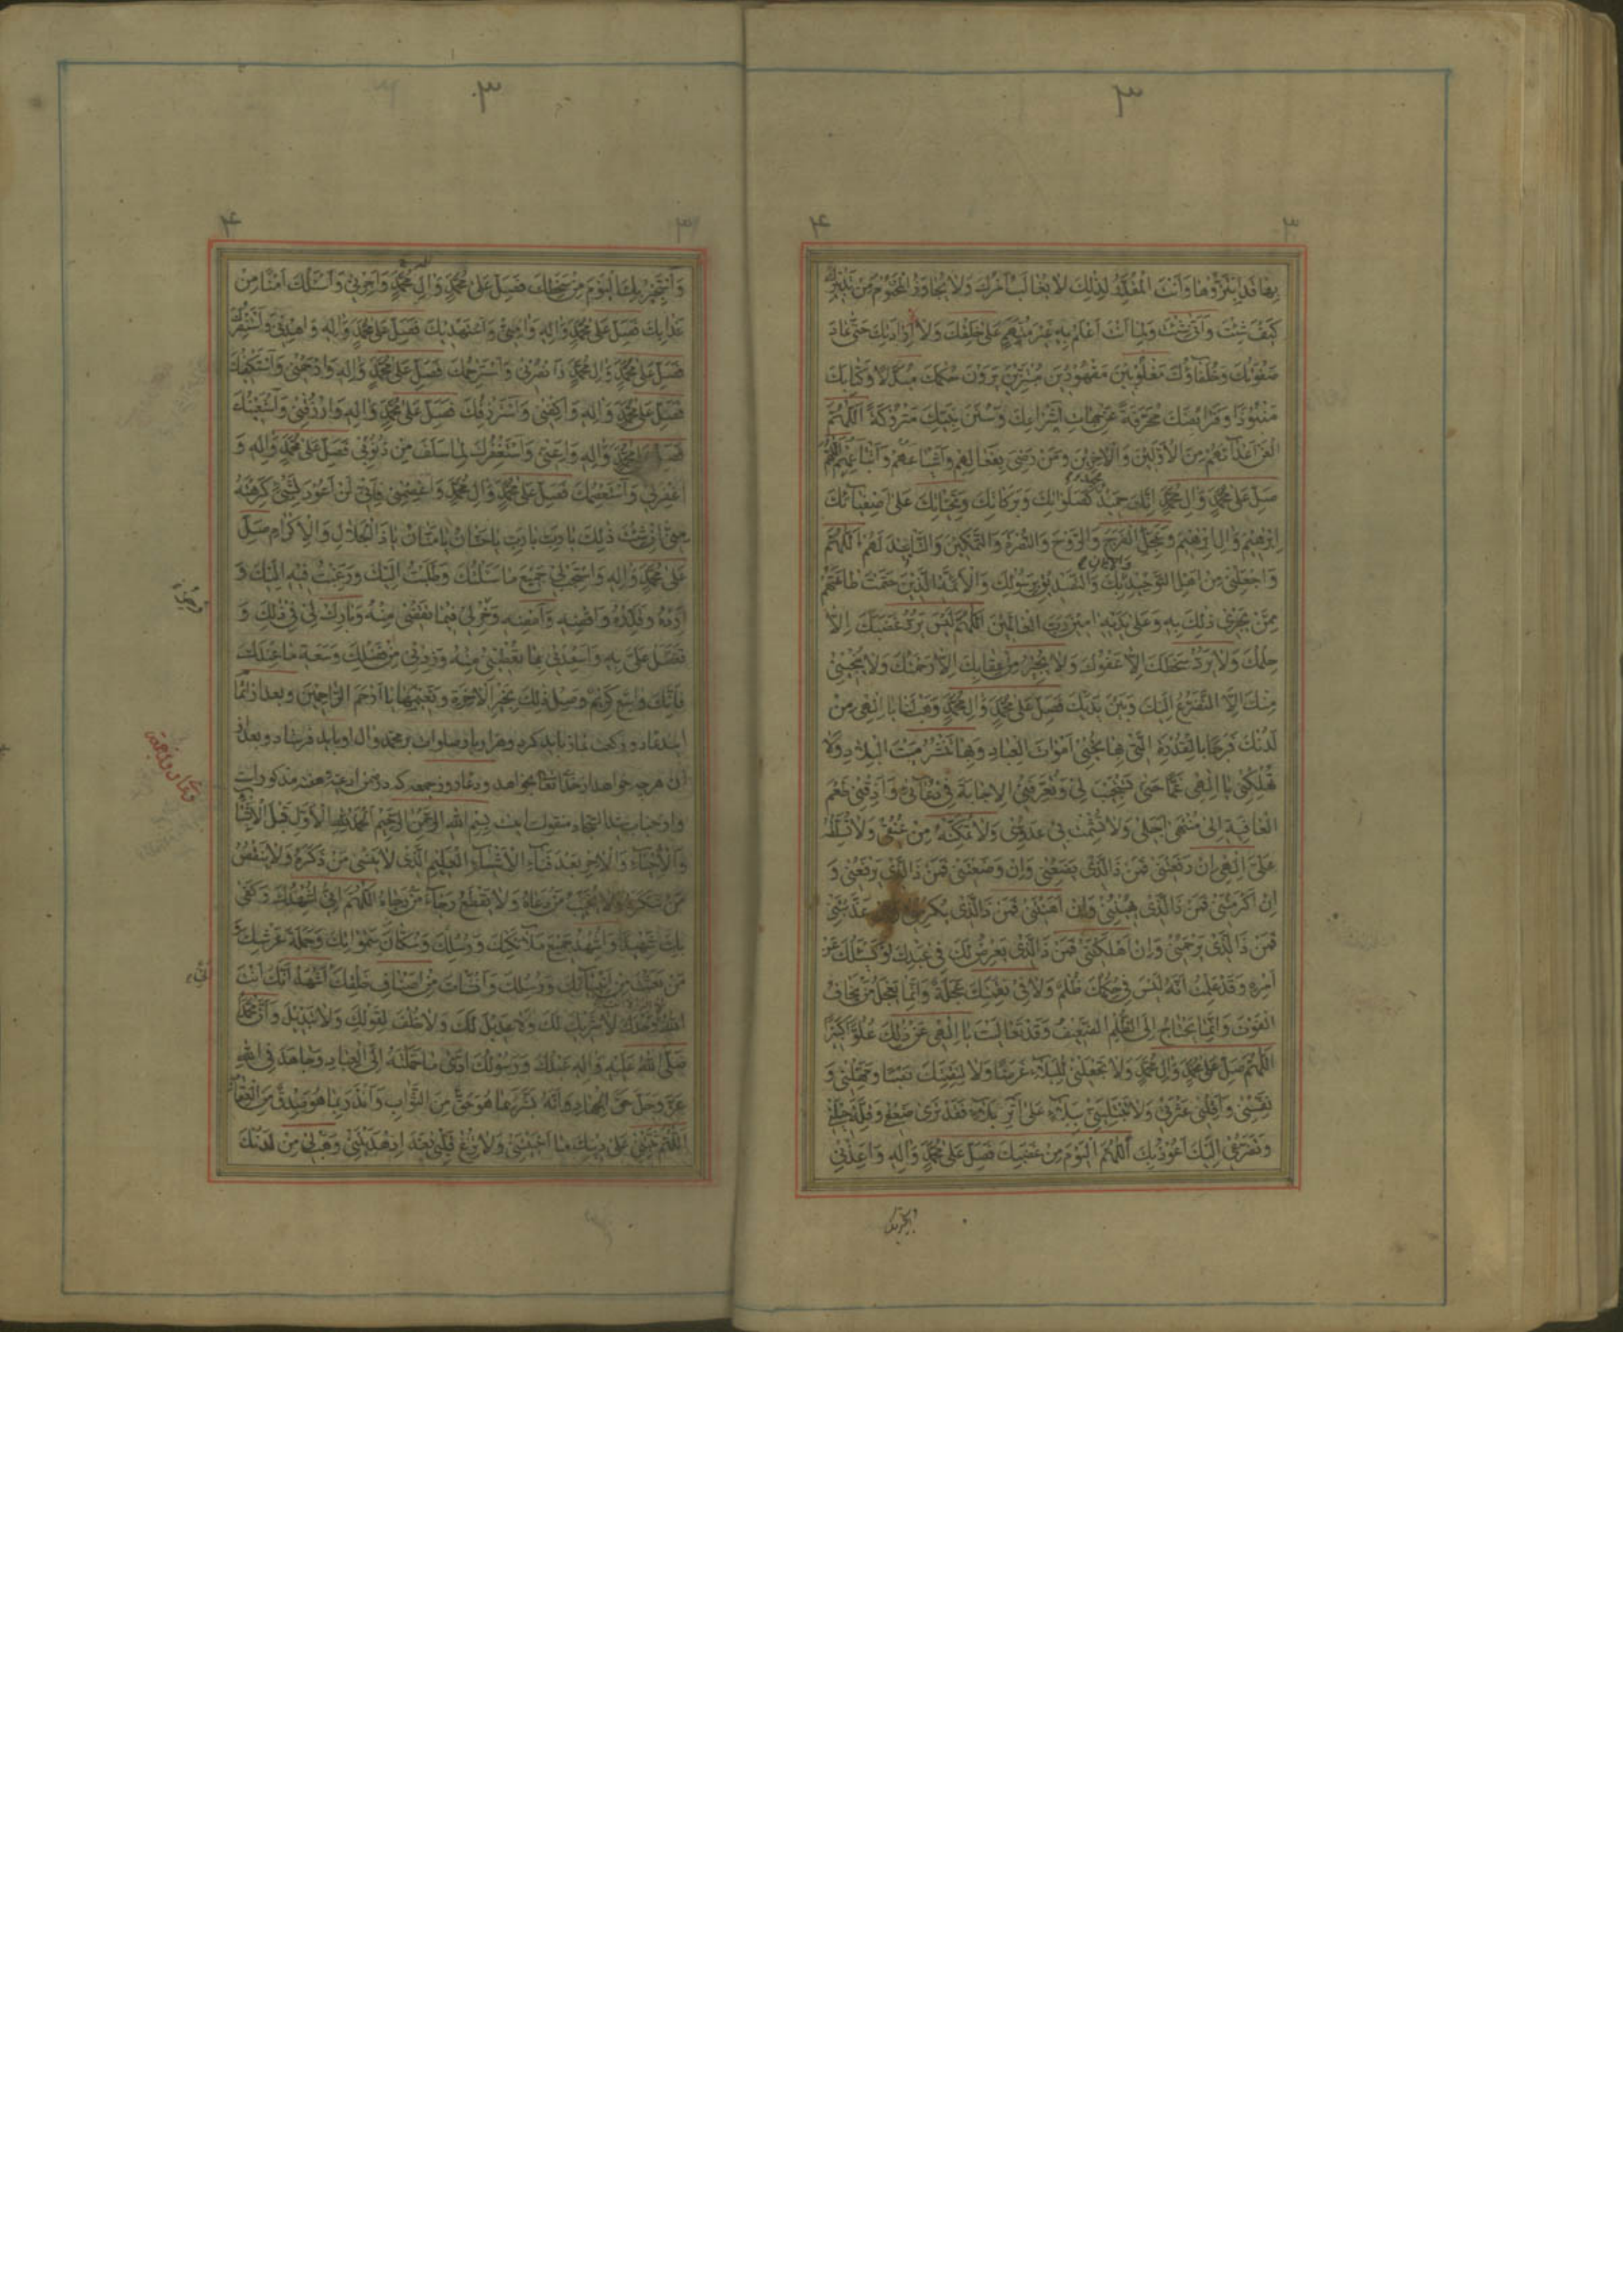 ۳
۳ ۴
بِهَا قَدِ ابْتَزُّوهَا وَاَنْتَ الْمُقَدِّرُ لِذٰلِكَ لَا يُغَالَبُ اَمْرُكَ وَلَا يُجَاوَزُ الْمَحْتُومُ مِنْ تَدْبِيرِكَ
كَيْفَ شِئْتَ وَاَنّٰى شِئْتَ وَلِمَا اَنْتَ اَعْلَمُ بِهِ غَيْرُ مُتَّهَمٍ عَلٰى خَلْقِكَ وَلَا لِاِرَادَتِكَ حَتّٰى عَادَ
صَفْوَتُكَ وَخُلَفَاؤُكَ مَغْلُوبِينَ مَقْهُورِينَ مُبْتَزِّينَ يَرَوْنَ حُكْمَكَ مُبَدَّلًا وَكِتَابَكَ
مَنْبُوذًا وَفَرَايِضَكَ مُحَرَّفَةً عَنْ جِهَاتِ اَشْرَاعِكَ وَسُنَنَ نَبِيِّكَ مَتْرُوكَةً اَللّٰهُمَّ
الْعَنْ اَعْدَآءَهُمْ مِنَ الْاَوَّلِينَ وَالْاٰخِرِينَ وَمَنْ رَضِيَ بِفَعَالِهِمْ وَاَشْيَاعَهُمْ وَاَتْبَاعَهُمْ اَللّٰهُمَّ
صَلِّ عَلٰى مُحَمَّدٍ وَاٰلِ مُحَمَّدٍ اِنَّكَ حَمِيدٌ مَجِيدٌ كَصَلَوَاتِكَ وَبَرَكَاتِكَ وَتَحِيَّاتِكَ عَلٰى اَصْفِيَآئِكَ
اِبْرٰهِيمَ وَاٰلِ اِبْرٰهِيمَ وَعَجِّلِ الْفَرَجَ وَالرَّوْحَ وَالنُّصْرَةَ وَالتَّمْكِينَ وَالتَّاْيِيدَ لَهُمْ اَللّٰهُمَّ
وَاجْعَلْنِي مِنْ اَهْلِ التَّوْحِيدِ وَالْاِيمَانِ بِكَ وَالتَّصْدِيقِ بِرَسُولِكَ وَالْاَئِمَّةِ الَّذِينَ حَتَمْتَ طَاعَتَهُمْ
مِمَّنْ يَجْرِي ذٰلِكَ بِهِ وَعَلٰى يَدَيْهِ اٰمِينَ رَبَّ الْعَالَمِينَ اَللّٰهُمَّ لَيْسَ يَرُدُّ غَضَبَكَ اِلَّا
حِلْمُكَ وَلَا يَرُدُّ سَخَطَكَ اِلَّا عَفْوُكَ وَلَا يُجِيرُ مِنْ عِقَابِكَ اِلَّا رَحْمَتُكَ وَلَا يُنْجِينِي
مِنْكَ اِلَّا التَّضَرُّعُ اِلَيْكَ وَبَيْنَ يَدَيْكَ فَصَلِّ عَلٰى مُحَمَّدٍ وَاٰلِ مُحَمَّدٍ وَهَبْ لَنَا يَا اِلٰهِي مِنْ
لَدُنْكَ فَرَجًا بِالْقُدْرَةِ الَّتِي بِهَا تُحْيِي اَمْوَاتَ الْعِبَادِ وَبِهَا تَنْشُرُ مَيْتَ الْبِلَادِ وَلَا
تُهْلِكْنِي يَا اِلٰهِي غَمًّا حَتّٰى تَسْتَجِيبَ لِي وَتُعَرِّفَنِي الْاِجَابَةَ فِي دُعَآئِي وَاَذِقْنِي طَعْمَ
الْعَافِيَةِ اِلٰى مُنْتَهٰى اَجَلِي وَلَا تُشْمِتْ بِي عَدُوِّي وَلَا تُمَكِّنْهُ مِنْ عُنُقِي وَلَا تُسَلِّطْهُ
عَلَيَّ اِلٰهِي اِنْ رَفَعْتَنِي فَمَنْ ذَا الَّذِي يَضَعُنِي وَاِنْ وَضَعْتَنِي فَمَنْ ذَا الَّذِي يَرْفَعُنِي وَ
اِنْ اَكْرَمْتَنِي فَمَنْ ذَا الَّذِي يُهِينُنِي وَاِنْ اَهَنْتَنِي فَمَنْ ذَا الَّذِي يُكْرِمُنِي عَذَّبْتَنِي
فَمَنْ ذَا الَّذِي يَرْحَمُنِي وَاِنْ اَهْلَكْتَنِي فَمَنْ ذَا الَّذِي يَعْرِضُ لَكَ فِي عَبْدِكَ اَوْ يَسْئَلُكَ عَنْ
اَمْرِهِ وَقَدْ عَلِمْتُ اَنَّهُ لَيْسَ فِي حُكْمِكَ ظُلْمٌ وَلَا فِي نِقْمَتِكَ عَجَلَةٌ وَاِنَّمَا يَعْجَلُ مَنْ يَخَافُ
الْفَوْتَ وَاِنَّمَا يَحْتَاجُ اِلَى الظُّلْمِ الضَّعِيفُ وَقَدْ تَعَالَيْتَ يَا اِلٰهِي عَنْ ذٰلِكَ عُلُوًّا كَبِيرًا
اَللّٰهُمَّ صَلِّ عَلٰى مُحَمَّدٍ وَاٰلِ مُحَمَّدٍ وَلَا تَجْعَلْنِي لِلْبَلَآءِ غَرَضًا وَلَا لِنِقْمَتِكَ نَصَبًا وَمَهِّلْنِي وَ
نَفِّسْنِي وَاَقِلْنِي عَثْرَتِي وَلَا تَبْتَلِيَنِّي بِبَلَآءٍ عَلٰى اَثَرِ بَلَآءٍ فَقَدْ تَرٰى ضَعْفِي وَقِلَّةَ حِيلَتِي
وَتَضَرُّعِي اِلَيْكَ اَعُوذُ بِكَ اَللّٰهُمَّ الْيَوْمَ مِنْ غَضَبِكَ فَصَلِّ عَلٰى مُحَمَّدٍ وَاٰلِهِ وَاَعِذْنِي
۳
۳ ۴
وَاَسْتَجِيرُ بِكَ الْيَوْمَ مِنْ سَخَطِكَ فَصَلِّ عَلٰى مُحَمَّدٍ وَاٰلِ مُحَمَّدٍ وَاَجِرْنِي وَاَسْئَلُكَ اَمْنًا مِنْ
عَذَابِكَ فَصَلِّ عَلٰى مُحَمَّدٍ وَاٰلِهِ وَاٰمِنِّي وَاَسْتَهْدِيكَ فَصَلِّ عَلٰى مُحَمَّدٍ وَاٰلِهِ وَاهْدِنِي وَاَسْتَنْصِرُكَ
فَصَلِّ عَلٰى مُحَمَّدٍ وَاٰلِ مُحَمَّدٍ وَانْصُرْنِي وَاَسْتَرْحِمُكَ فَصَلِّ عَلٰى مُحَمَّدٍ وَاٰلِهِ وَارْحَمْنِي وَاَسْتَكْفِيكَ
فَصَلِّ عَلٰى مُحَمَّدٍ وَاٰلِهِ وَاكْفِنِي وَاَسْتَرْزِقُكَ فَصَلِّ عَلٰى مُحَمَّدٍ وَاٰلِهِ وَارْزُقْنِي وَاَسْتَعِينُكَ
فَصَلِّ عَلٰى مُحَمَّدٍ وَاٰلِهِ وَاَعِنِّي وَاَسْتَغْفِرُكَ لِمَا سَلَفَ مِنْ ذُنُوبِي فَصَلِّ عَلٰى مُحَمَّدٍ وَاٰلِهِ وَ
اغْفِرْ لِي وَاَسْتَعْصِمُكَ فَصَلِّ عَلٰى مُحَمَّدٍ وَاٰلِ مُحَمَّدٍ وَاعْصِمْنِي فَاِنِّي لَنْ اَعُودَ لِشَيْءٍ كَرِهْتَهُ
مِنِّي اِنْ شِئْتَ ذٰلِكَ يَا رَبِّ يَا رَبِّ يَا حَنَّانُ يَا مَنَّانُ يَا ذَا الْجَلَالِ وَالْاِكْرَامِ صَلِّ
عَلٰى مُحَمَّدٍ وَاٰلِهِ وَاسْتَجِبْ لِي جَمِيعَ مَا سَئَلْتُكَ وَطَلَبْتُ اِلَيْكَ وَرَغِبْتُ فِيهِ اِلَيْكَ وَ
اَرِدْهُ وَقَدِّرْهُ وَاقْضِهِ وَاَمْضِهِ وَخِرْ لِي فِيمَا تَقْضِي مِنْهُ وَبَارِكْ لِي فِي ذٰلِكَ وَ
تَفَضَّلْ عَلَيَّ بِهِ وَاَسْعِدْنِي بِمَا تُعْطِينِي مِنْهُ وَزِدْنِي مِنْ فَضْلِكَ وَسَعَةِ مَا عِنْدَكَ
فَاِنَّكَ وَاسِعٌ كَرِيمٌ وَصِلْ ذٰلِكَ بِخَيْرِ الْاٰخِرَةِ وَنَعِيمِهَا يَا اَرْحَمَ الرَّاحِمِينَ وبعد از اتمام
اين دعا دو ركعت نماز بايد كرد وهزار بار صلوات بر محمد وآل او بايد فرستاد وبعد از
آن هر چه خواهد از خداى تعالى بخواهد ودعاء روز جمعه كه در ضمن ادعيه هفته مذكور است
بِسْمِ اللهِ الرَّحْمٰنِ الرَّحِيمِ اَلْحَمْدُ لِلّٰهِ الْاَوَّلِ قَبْلَ الْاِنْشَآءِ
وَالْاِحْيَآءِ وَالْاٰخِرِ بَعْدَ فَنَآءِ الْاَشْيَآءِ الْعَلِيمِ الَّذِي لَا يَنْسٰى مَنْ ذَكَرَهُ وَلَا يَنْقُصُ
مَنْ شَكَرَهُ وَلَا يُخَيِّبُ مَنْ دَعَاهُ وَلَا يَقْطَعُ رَجَآءَ مَنْ رَجَاهُ اَللّٰهُمَّ اِنِّي اُشْهِدُكَ وَكَفٰى
بِكَ شَهِيدًا وَاُشْهِدُ جَمِيعَ مَلَآئِكَتِكَ وَرُسُلِكَ وَسُكَّانَ سَمٰوَاتِكَ وَحَمَلَةَ عَرْشِكَ وَ
مَنْ بَعَثْتَ مِنْ اَنْبِيَآئِكَ وَرُسُلِكَ وَاَنْشَاْتَ مِنْ اَصْنَافِ خَلْقِكَ اَنِّي اَشْهَدُ اَنَّكَ اَنْتَ
اللهُ وَحْدَكَ لَا شَرِيكَ لَكَ وَلَا عَدِيلَ لَكَ وَلَا خُلْفَ لِقَوْلِكَ وَلَا تَبْدِيلَ وَاَنَّ مُحَمَّدًا
صَلَّى اللهُ عَلَيْهِ وَاٰلِهِ عَبْدُكَ وَرَسُولُكَ اَدّٰى مَا حَمَّلْتَهُ اِلَى الْعِبَادِ وَجَاهَدَ فِي اللهِ
عَزَّ وَجَلَّ حَقَّ الْجِهَادِ وَاَنَّهُ بَشَّرَ بِمَا هُوَ حَقٌّ مِنَ الثَّوَابِ وَاَنْذَرَ بِمَا هُوَ صِدْقٌ مِنَ الْعِقَابِ
اَللّٰهُمَّ ثَبِّتْنِي عَلٰى دِينِكَ مَا اَحْيَيْتَنِي وَلَا تُزِغْ قَلْبِي بَعْدَ اِذْ هَدَيْتَنِي وَهَبْ لِي مِنْ لَدُنْكَ